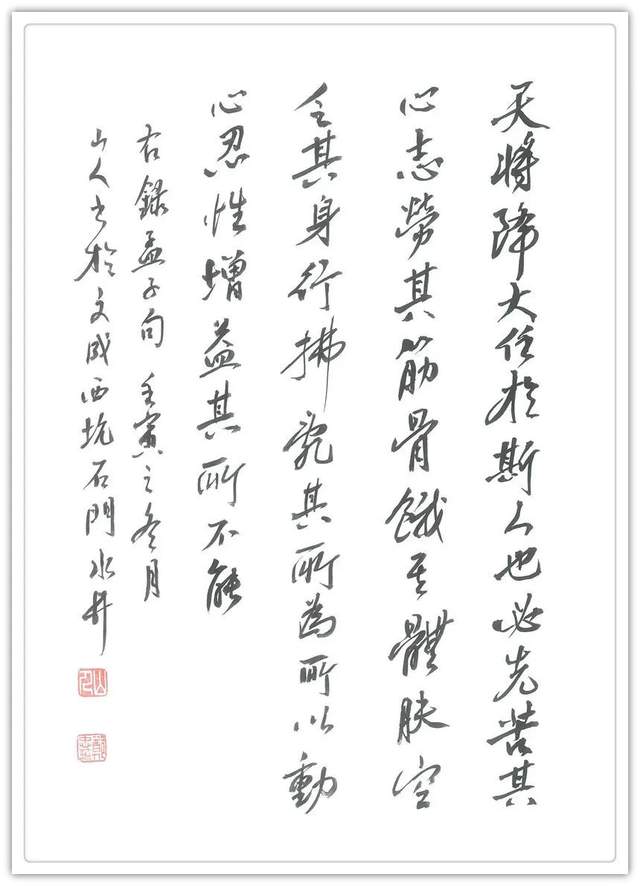 天將降大任於斯人也必先苦其
心志勞其筋骨餓其體膚空
乏其身行拂亂其所為所以動
心忍性增益其所不能
右錄孟子句 壬寅之冬月
山人書於文成西坑石門水井